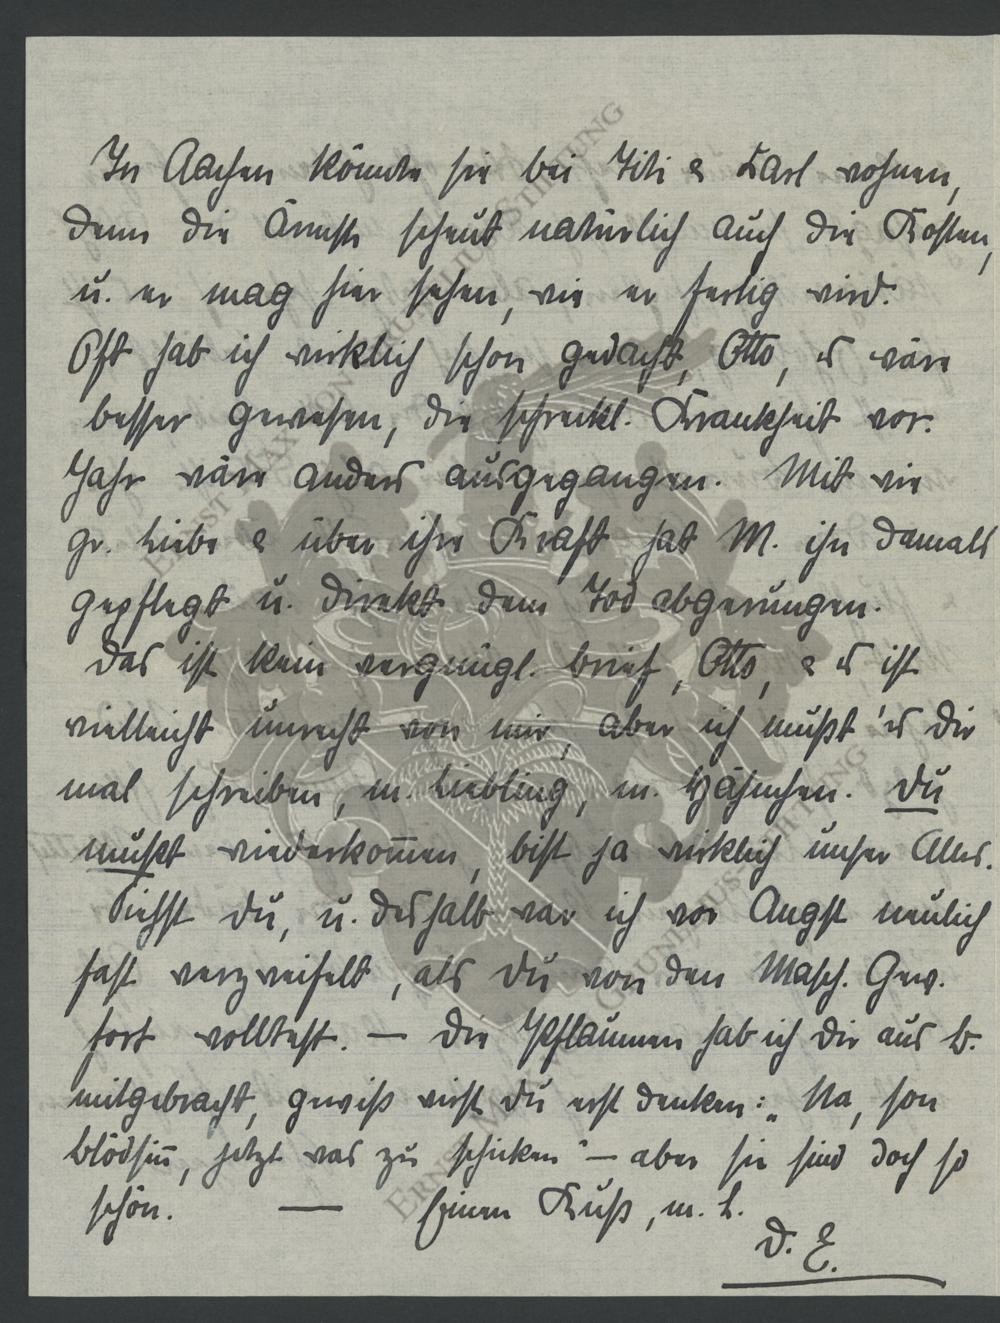 In Aachen könnte sie bei Titi & Karl wohnen,
denn die Ärmste scheut natürlich auch die Kosten,
u. er mag hier sehen, wie er fertig wird.
Oft hab ich wirklich schon gedacht, Otto, es wäre
besser gewesen, die schreckl. Krankheit vor.
Jahr wäre anders ausgegangen. Mit wie
gr. Liebe & über ihre Kraft hat M. ihn damals
gepflegt u. direkt dem Tod abgerungen.
Das ist kein vergnügl. Brief, Otto, & es ist
vielleicht unrecht von mir, aber ich mußt 'es Dir
mal schreiben, m. Liebling, m. Hähnchen. Du
mußt wiederkom̅en, bist ja wirklich unser Alles.
Siehst Du, u. deshalb war ich vor Angst neulich
fast verzweifelt, als Du von den Masch. Gew.
fort wolltest. — Die Pflaumen hab ich Dir aus B.
mitgebracht, gewiß wirst Du erst denken: „Na, son
Blödsin̅, jetzt was zu schicken" — aber sie sind doch so
schön. — Einen Kuß, m. L.
D. E.
ERNST MAX VON GRUNELIUS-STIFTUNG
ERNST MAX VON GRUNELIUS-STIFTUNG